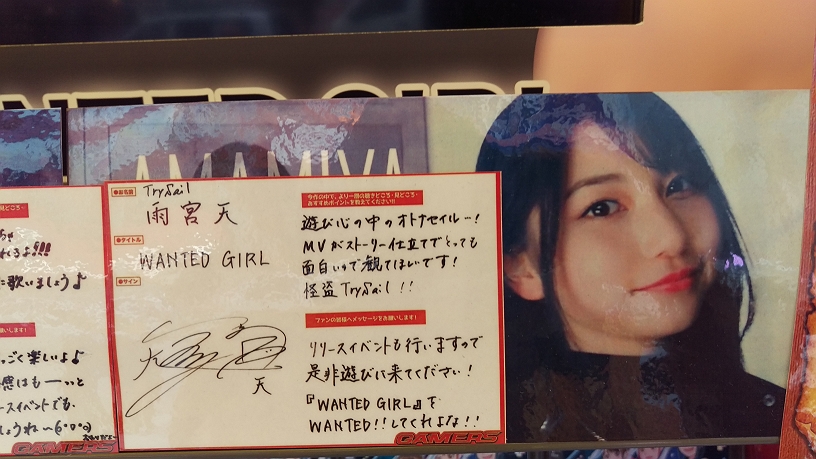 WANTED GIRL
AMAMIYA
●お名前
TrySail
雨宮 天
●タイトル
WANTED GIRL
●サイン
天
今作の中で、より一層の聴きどころ・見どころ・
おすすめポイントを教えてください!!
遊び心の中のオトナセイル…!
MVがストーリー仕立てでとっても
面白いので観てほしいです!
怪盗TrySail !!
ファンの皆様へメッセージをお願いします!
リリースイベントも行いますので
是非遊びに来てください!
『WANTED GIRL』を
WANTED!!してくれよな!!
GAMERS
見どころ・
れるよ!!!
に歌いましょう♪
願いします!
っごく楽しいよ♪
感はも――っと
ースイベントでも、
しょうね〜
GAMERS